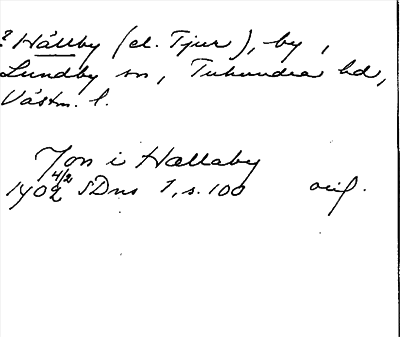 ? Hållby (el. Tjur), by,
Lundby sn, Tuhundra hd,
Västm. l.
Jon i Hællaby
1402 4/2 SDns 1, s. 100 orig.